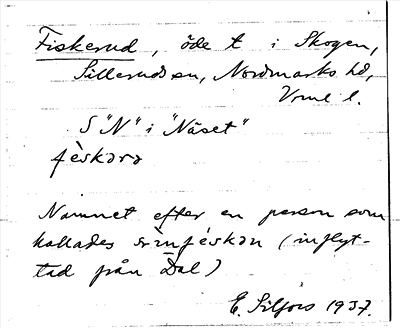 Fiskerud, öde t i Skogen,
Silleruds sn, Nordmarks hd,
Vrml l.
S "N" i "Näset"
fèskərə
Namnet efter en person som
kallades sṛinféskən (inflyt-
tad från Dal)
E. Silfors 1937.